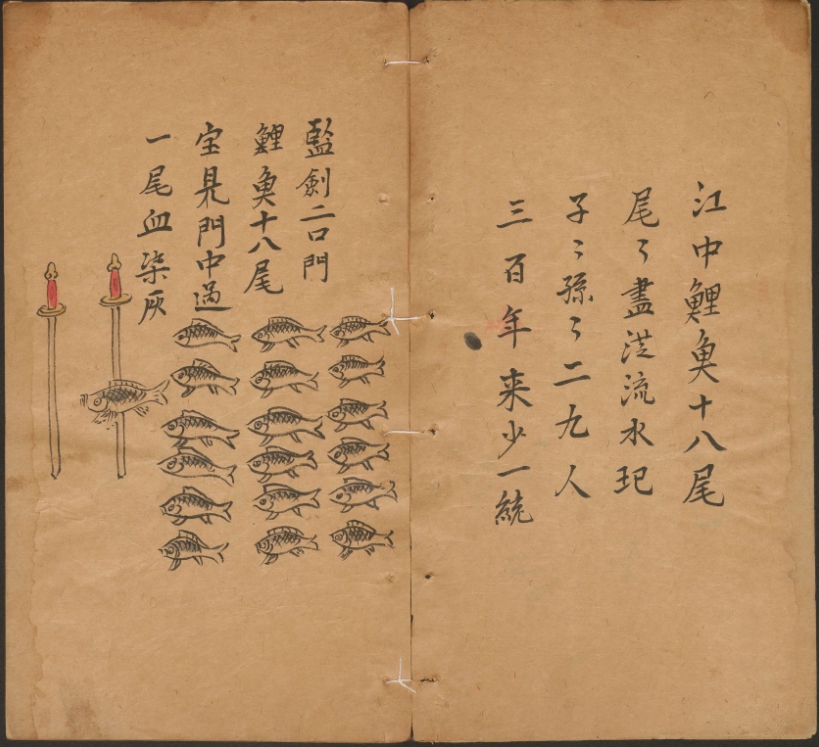 江中鯉魚十八尾
尾々盡濨流水玘
子〻孫〻二九人
三百年来少一統
藍劍二口門
鯉魚十八尾
宝見門中過
一尾血染灰